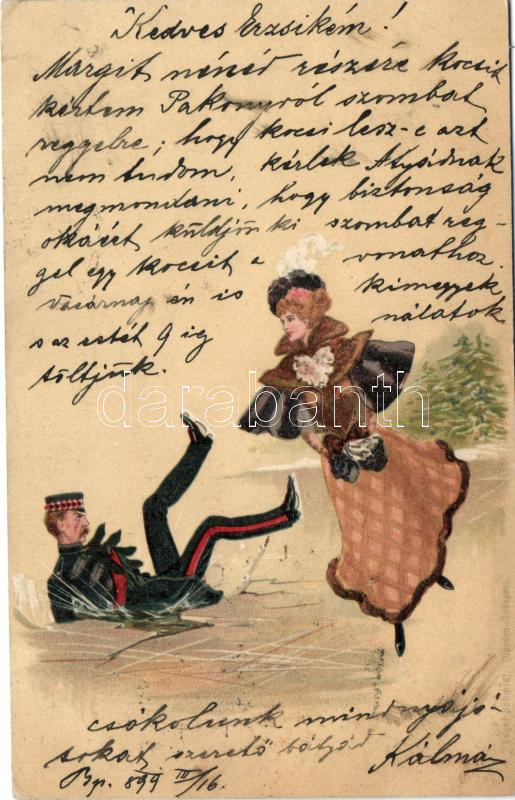 Kedves Erzsikém!
Margit nénéd részére kocsit
kértem Pakonyról szombat
reggelre; hogy kocsi lesz-e azt
nem tudom, kérlek Atyádnak
megmondani, hogy biztonság
okáért küldjön ki szombat reg-
gel egy kocsit a vonathoz.
Vasárnap én is kimegyek
nálatok
s az estét 9 ig
töltjük.
darabanth
csókolunk mindnyájó-
tokat szerető bátyád Kálmán
Bp. 899 III/16.